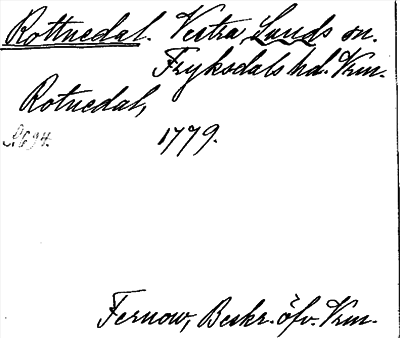 Rottnedal. Västra Sunds sn.
Fryksdals hd. Vrm.
Rotnedal,
S. 694. 1779.
Fernow, Beskr. öfv. Vrm.